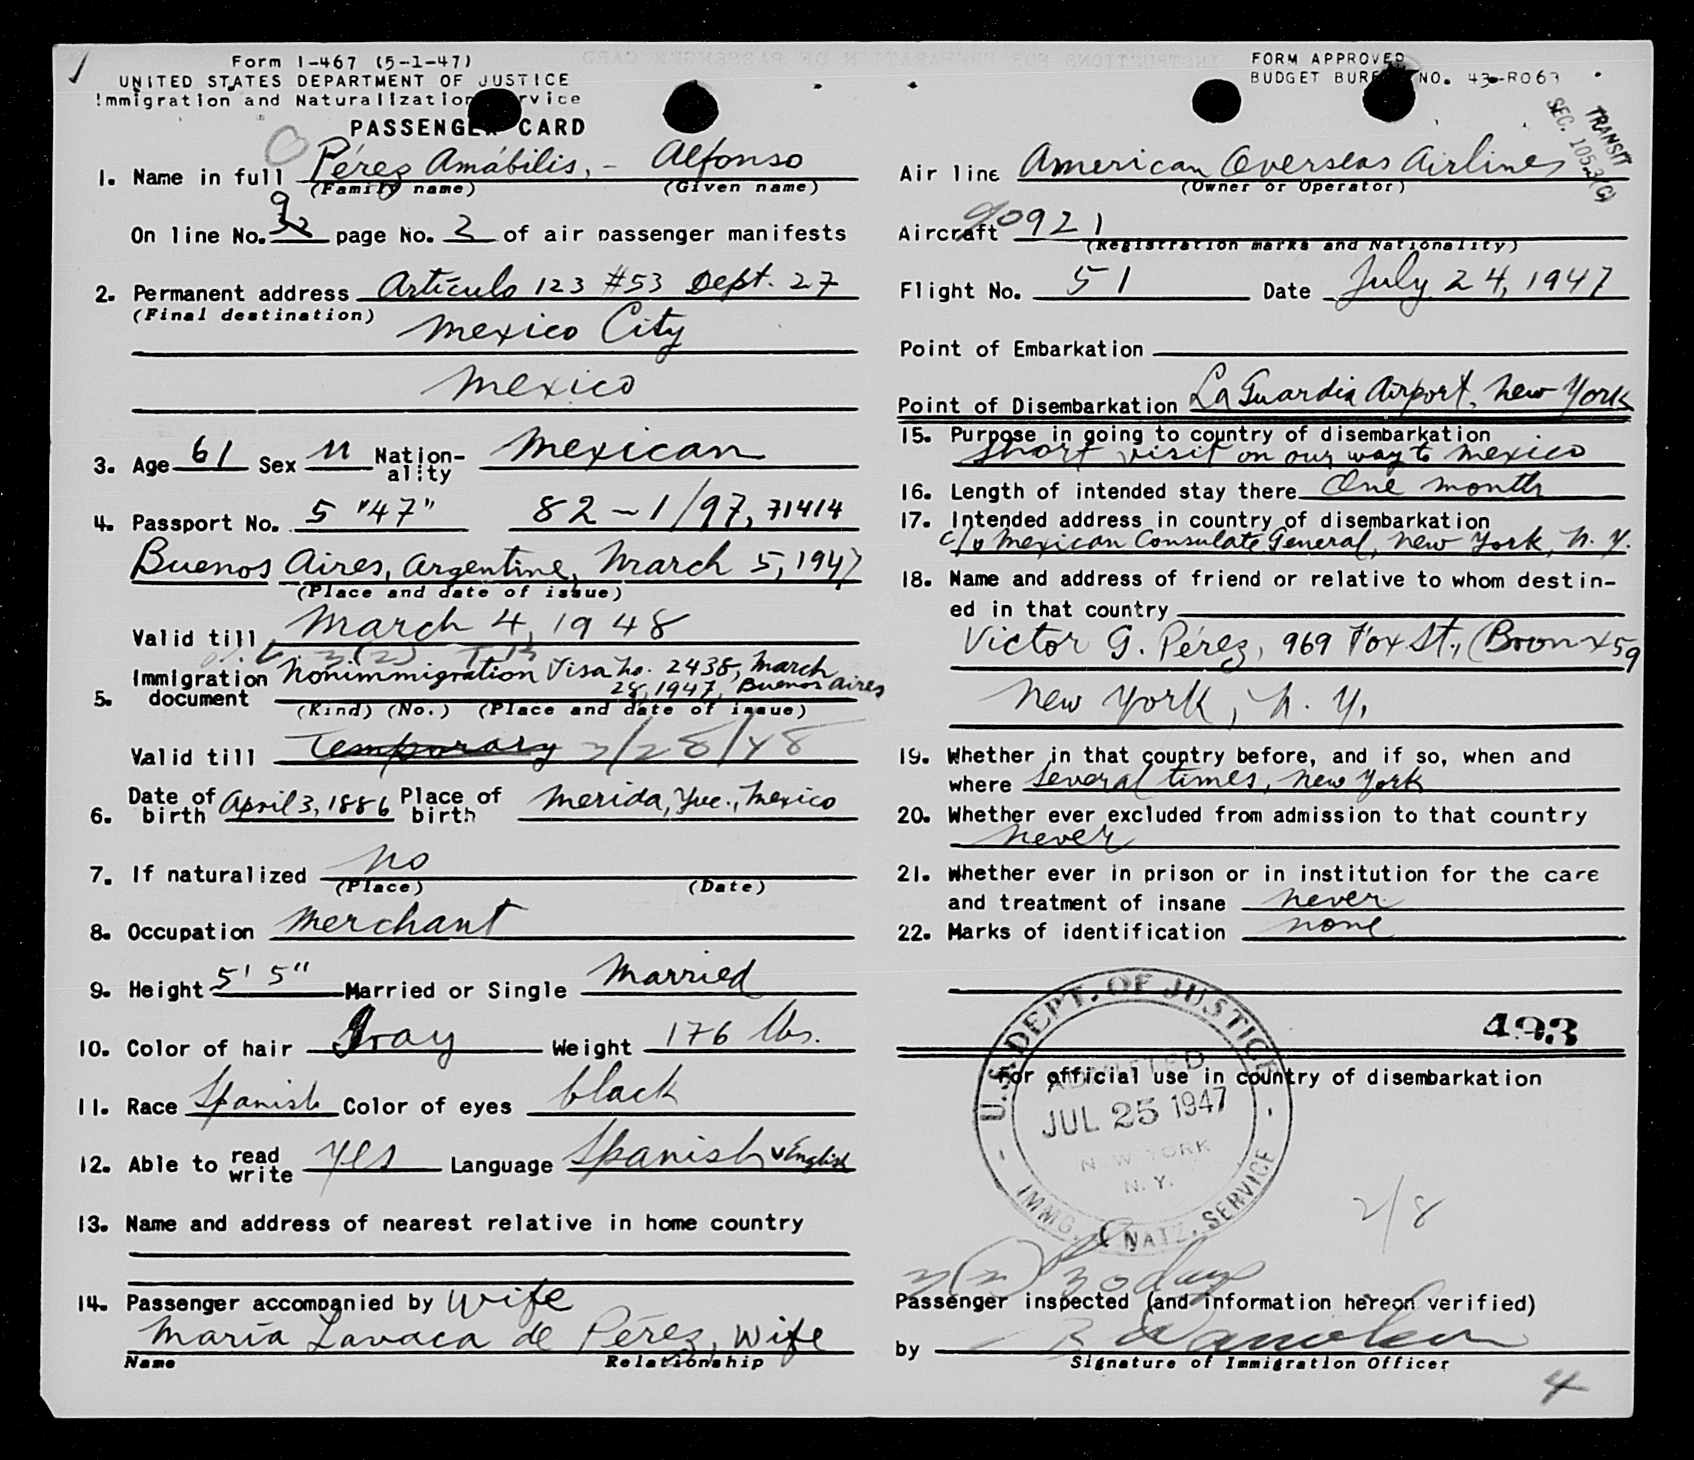 Form I-467 (5-1-47)
UNITED STATES DEPARTMENT OF JUSTICE
Immigration and Naturalization Service
PASSENGER CARD
1. Name in full Pérez Amábilis, - Alfonso
(Family name) (Given name)
On line No. 9 page No. 2 of air passenger manifests
2. Permanent address Artículo 123 #53 Dept. 27
(Final destination)
Mexico City
Mexico
3. Age 61 Sex M Nation-ality Mexican
4. Passport No. 5 "47" 82-1/97, 71414
Buenos Aires, Argentine, March 5, 1947
(Place and date of issue)
Valid till March 4, 1948
3(2)
5. Immigration document Nonimmigration Visa No. 2438, March
28, 1947, Buenos Aires
(Kind) (No.) (Place and date of issue)
Valid till Temporary 3/28/48
6. Date of birth April 3, 1886 Place of birth Merida, Yuc., Mexico
7. If naturalized No
(Place) (Date)
8. Occupation Merchant
9. Height 5' 5" Married or Single Married
10. Color of hair Gray Weight 176 lbs.
11. Race Spanish Color of eyes black
12. Able to read write yes Language Spanish & English
13. Name and address of nearest relative in home country
14. Passenger accompanied by Wife
María Lavaca de Pérez, Wife
Name Relationship
FORM APPROVED
BUDGET BUREAU NO. 43-R063
TRANSIT
SEC. 105.3(C)
Air line American Overseas Airlines
(Owner or Operator)
Aircraft 90921
(Registration marks and Nationality)
Flight No. 51 Date July 24, 1947
Point of Embarkation
Point of Disembarkation La Guardia Airport, New York
15. Purpose in going to country of disembarkation
short visit on our way to Mexico
16. Length of intended stay there One month
17. Intended address in country of disembarkation
c/o Mexican Consulate General, New York, N. Y.
18. Name and address of friend or relative to whom destin-
ed in that country
Victor G. Pérez, 969 Fox St., Bronx 59
New York, N. Y.
19. Whether in that country before, and if so, when and
where Several times, New York
20. Whether ever excluded from admission to that country
Never
21. Whether ever in prison or in institution for the care
and treatment of insane Never
22. Marks of identification None
493
For official use in country of disembarkation
U.S. DEPT. OF JUSTICE
ADMITTED
JUL 25 1947
NEW YORK
N. Y.
IMMG. & NATZ. SERVICE
2/8
3(2) 30 days
Passenger inspected (and information hereon verified)
by
Signature of Immigration Officer
4